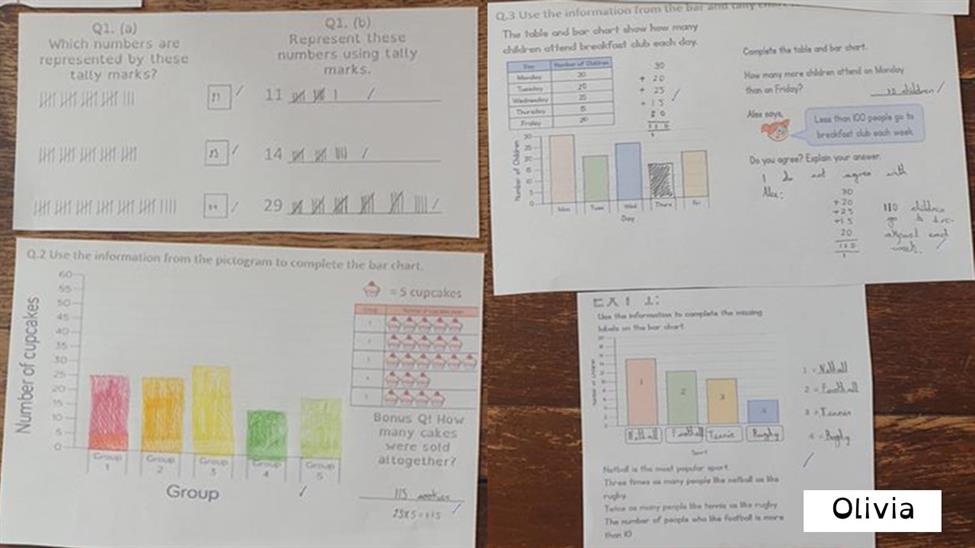 Q1. (a)
Which numbers are
represented by these
tally marks?
Q1. (b)
Represent these
numbers using tally
marks.
11
14
29
Q.2 Use the information from the pictogram to complete the bar chart.
Number of cupcakes
60
55
50
45
40
35
30
25
20
15
10
5
0
Group 1
Group 2
Group 3
Group 4
Group 5
Group
= 5 cupcakes
1
2
3
4
5
Bonus Q! How
many cakes
were sold
altogether?
115
Q.3 Use the information from the bar and tally chart
The table and bar chart show how many
children attend breakfast club each day.
Day Number of Children
Monday 30
Tuesday 20
Wednesday 25
Thursday 15
Friday 20
30
+ 20
+ 25
+ 15
20
110
1
Number of Children
Mon Tues Wed Thurs Fri
Day
Complete the table and bar chart.
How many more children attend on Monday
than on Friday?
10 children
Alex says,
Less than 100 people go to
breakfast club each week.
Do you agree? Explain your answer.
I do not agree with
Alex:
30
+20
+25
+15
20
110
1
110 children
go to
each
week.
EXT 1:
Use the information to complete the missing
labels on the bar chart.
Number of Children
1
2
3
4
Netball Football Tennis Rugby
Sport
1 = Netball
2 = Football
3 = Tennis
4 = Rugby
Netball is the most popular sport.
Three times as many people like netball as like
rugby.
Twice as many people like tennis as like rugby.
The number of people who like football is more
than 10
Olivia